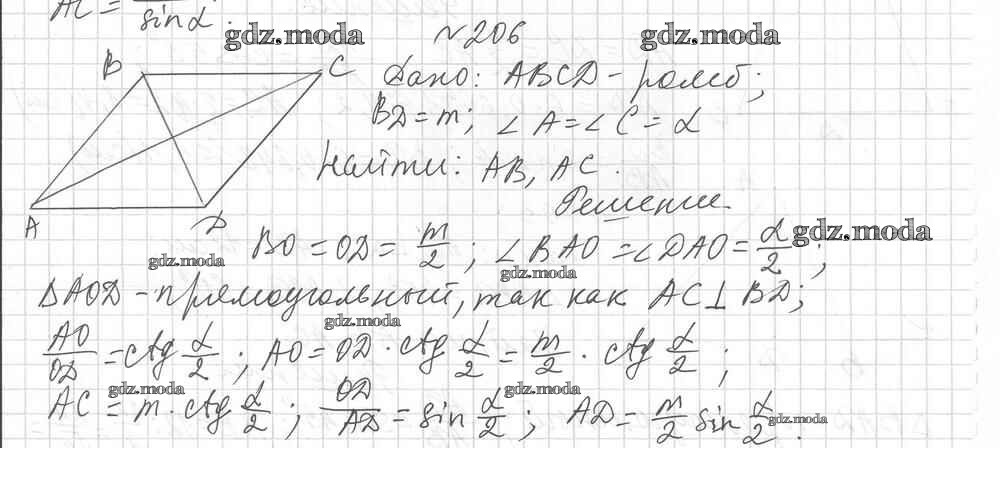 AC = sinα .
gdz.moda №206 gdz.moda
B C Дано: ABCD - ромб;
BD = m; ∠A = ∠C = α
Найти: AB, AC.
Решение.
A D
BO = OD = m/2; ∠BAO = ∠DAO = α/2; gdz.moda
gdz.moda gdz.moda
ΔAOD - прямоугольный, так как AC ⊥ BD;
gdz.moda
AO/OD = ctg α/2; AO = OD · ctg α/2 = m/2 · ctg α/2;
gdz.moda gdz.moda
AC = m · ctg α/2; OD/AD = sin α/2; AD = m/2 sin α/2. gdz.moda